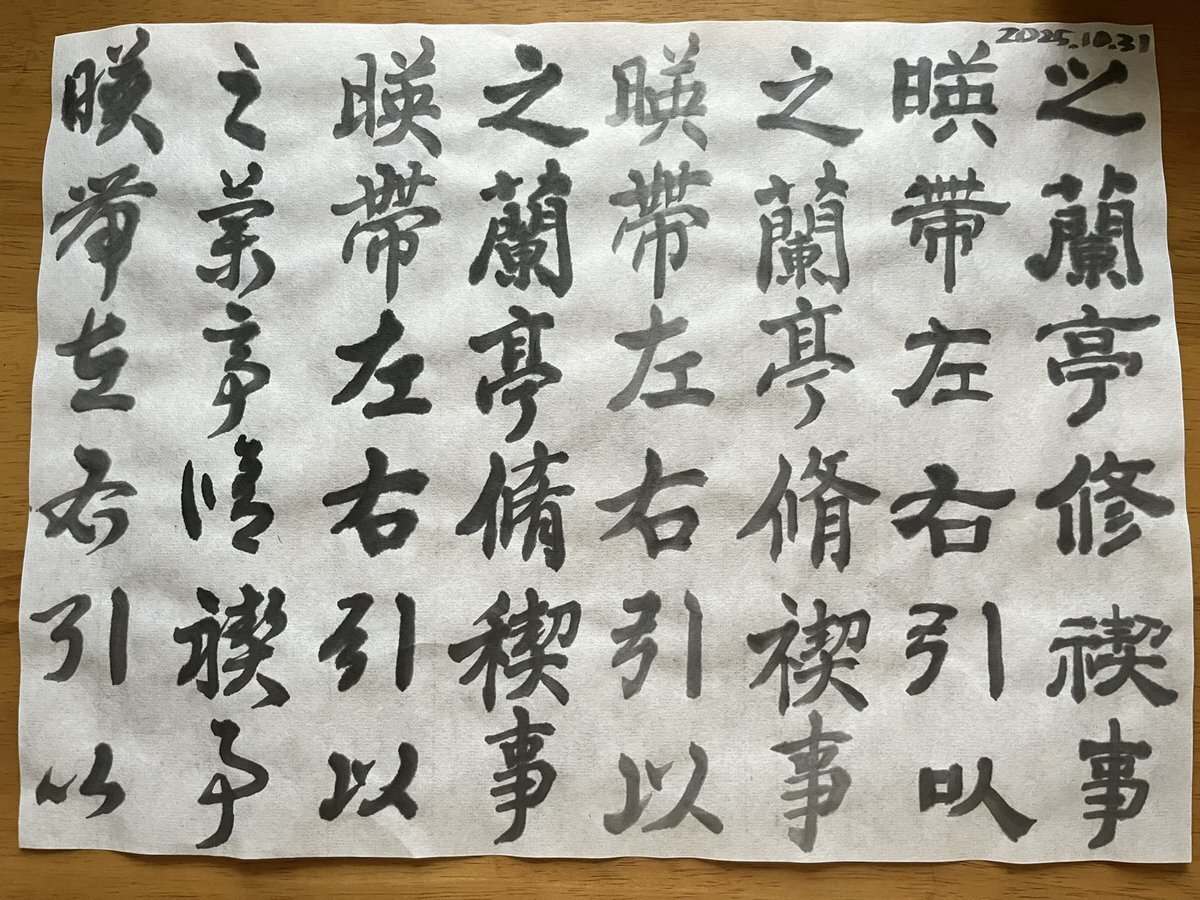 2025.10.31
之蘭亭修禊事
暎帶左右引以
之蘭亭脩禊事
暎帶左右引以
之蘭亭脩稧事
暎帶左右引以
之蘭亭脩禊事
暎帶左右引以